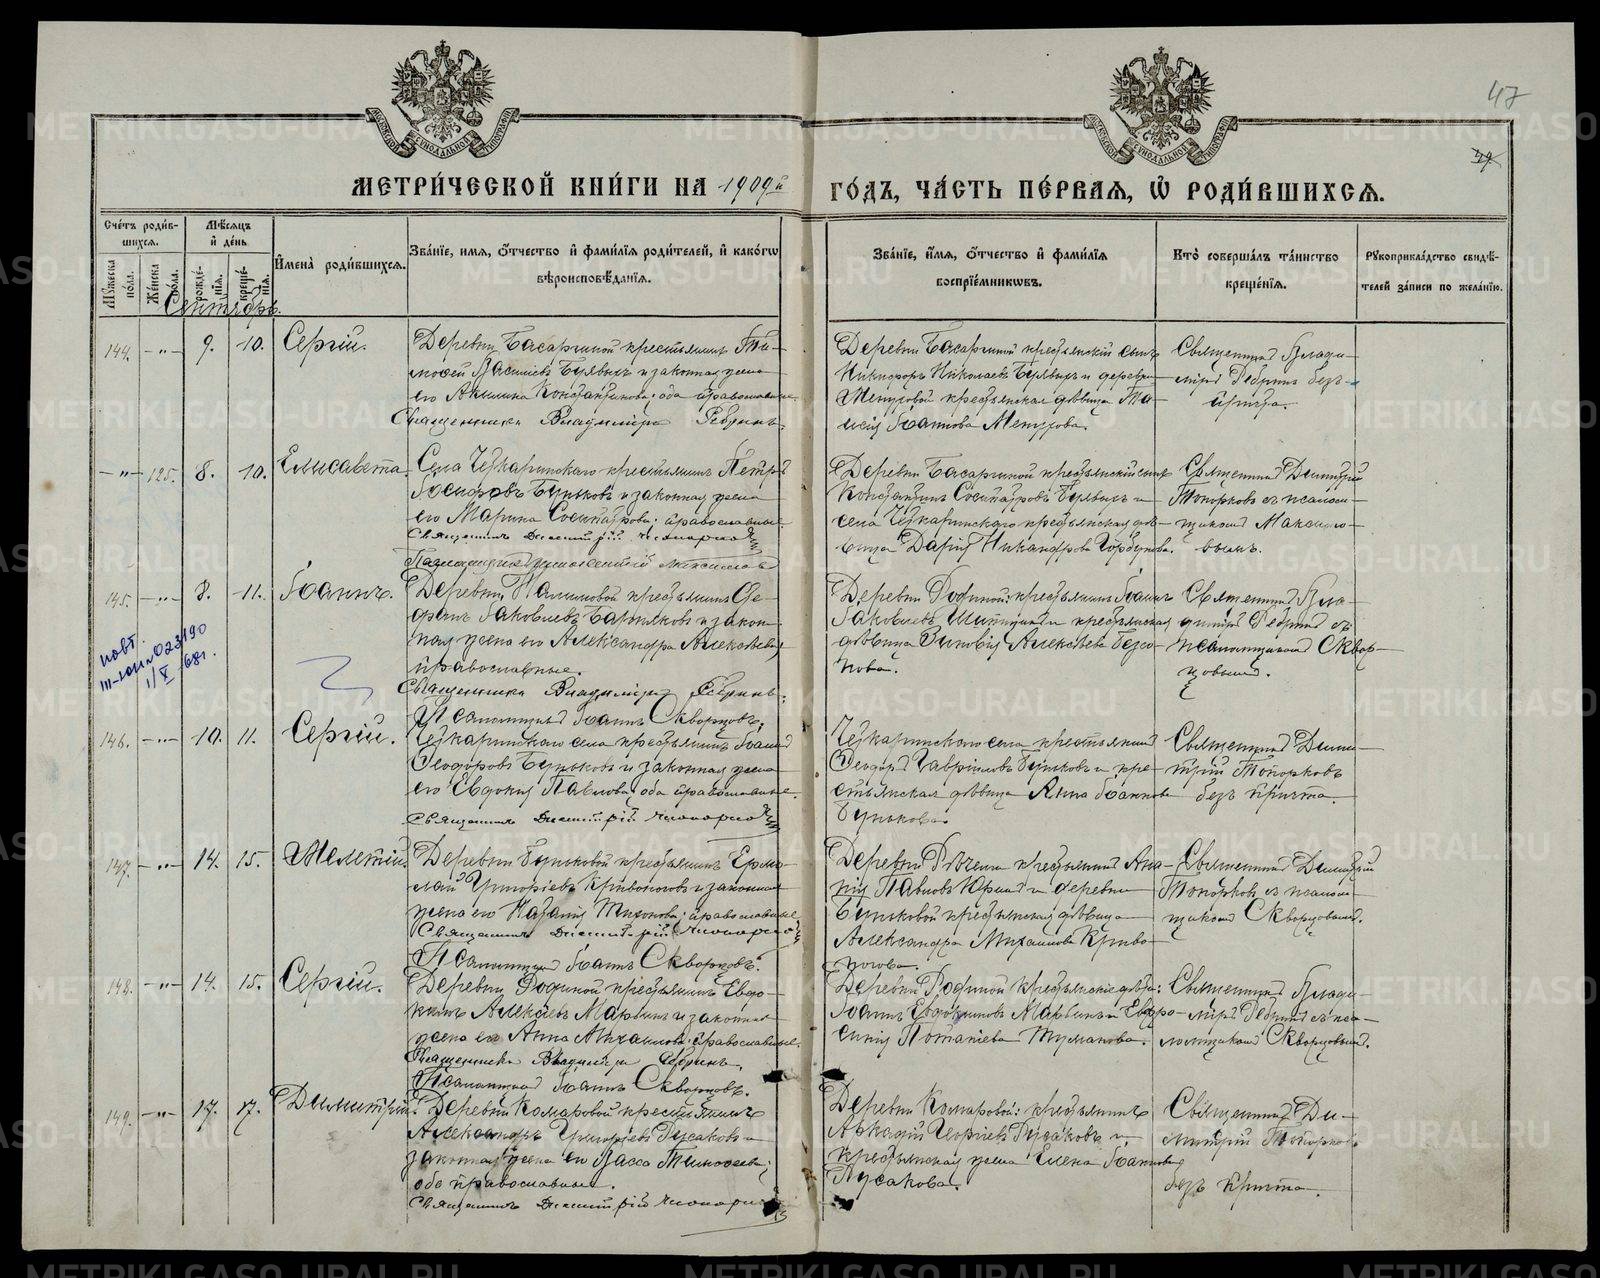 47
МЕТРИ́ЧЕСКОЙ КНИ́ГИ НА 1909й ГО́ДЪ, ЧА́СТЬ ПЕ́РВАЯ, Ѡ РОДИ́ВШИХСЯ.
Сче́тъ роди́вшихся.
Му́жеска по́ла.
Же́нска по́ла.
Мѣ́сяцъ и де́нь
рожде́нія.
креще́нія.
Имена̀ роди́вшихся.
Зва́нїе, имя, ѻтчество и фами́лїя роди́телей, и како́гѡ вѣроисповѣ́данїя.
Зва́нїе, и́мя, ѻтчество и фами́лїя воспрїе́мникѡвъ.
Кто̀ соверша́лъ та́инство креще́нїя.
Рꙋкоприкла́дство свидѣ́телей за́писи по жела́нїю.
Сентябрь.
144. -"- 9. 10. Сергій.
Деревни Басаргиной крестьянинъ Ти-
мофей Васильевъ и законная жена
его Акилина Константинова, оба православные
Священникъ Владиміръ Ребринъ.
Деревни Басаргиной крестьянскій сынъ
Никифоръ Николаевъ и деревни
крестьянская дѣвица Та-
исія Іоаннова
Священникъ Влади-
міръ Ребринъ безъ
причта.
-"- 125. 8. 10. Елисавета
Села Четкаринскаго крестьянинъ Петръ
Іосифовъ Буньковъ и законная жена
его Марина Сосипатрова, православные
Священникъ Димитрій Топорковъ
Максимовъ
Деревни Басаргиной крестьянскій сынъ
Константинъ Сосипатровъ и
села Четкаринскаго крестьянская дѣ-
вица Дарія Никандрова Горбунова.
Священникъ Димитрій
Топорковъ съ псалом-
щикомъ Максимо-
вымъ.
145. -"- 8. 11. Іоаннъ.
Деревни крестьянинъ
Іаковлевъ и закон-
ная жена его Александра Алексѣева,
православные.
Священникъ Владиміръ Ребринъ.
Псаломщикъ Іоаннъ Скворцовъ.
Деревни Родиной: крестьянинъ Іоаннъ
Іаковлевъ и крестьянская
дѣвица Зиновія Алексѣева
Священникъ Вла-
диміръ Ребринъ съ
псаломщикомъ Сквор-
цовымъ.
повт.
III-ЮИ №023190
1/V 68г.
146. -"- 10. 11. Сергій.
Четкаринскаго села крестьянинъ Іоаннъ
Ѳеодоровъ Буньковъ и законная жена
его Евдокія Павлова, оба православные
Священникъ Димитрій Топорковъ
Четкаринскаго села крестьянинъ
Ѳеодоръ Гавріиловъ Буньковъ и кре-
стьянская дѣвица Анна Іоаннова
Бунькова.
Священникъ Дими-
трій Топорковъ
безъ причта.
147. -"- 14. 15. Мелетій
Деревни Буньковой крестьянинъ Ермо-
лай Григорьевъ Кривоноговъ и законная
жена его Наталія Тихонова, православные
Священникъ Димитрій Топорковъ
Псаломщикъ Іоаннъ Скворцовъ.
Деревни крестьянинъ Ана-
нія Павловъ Юринъ и деревни
Буньковой крестьянская дѣвица
Александра Михаилова Криво-
ногова.
Священникъ Димитрій
Топорковъ съ псалом-
щикомъ Скворцовымъ.
148. -"- 14. 15. Сергій.
Деревни Родиной крестьянинъ Евдо-
кимъ Алексѣевъ и законная
жена его Анна Михаилова, православные.
Священникъ Владиміръ Ребринъ.
Псаломщикъ Іоаннъ Скворцовъ.
Деревни Родиной крестьянскіе дѣти:
Іоаннъ Евдокимовъ и Евфро-
синія Потапіева Туманова.
Священникъ Влади-
міръ Ребринъ съ пса-
ломщикомъ Скворцовымъ.
149. -"- 17. 17. Димитрій.
Деревни Комаровой крестьянинъ
Александръ Григорьевъ Русаковъ и
законная жена его Васса Тимофеева,
оба православные.
Священникъ Димитрій Топорковъ
Деревни Комаровой: крестьянинъ
Аркадій Георгіевъ Русаковъ и
крестьянская жена Елена Іоаннова
Русакова.
Священникъ Ди-
митрій Топорковъ
безъ причта.
METRIKI.GASO-URAL.RU